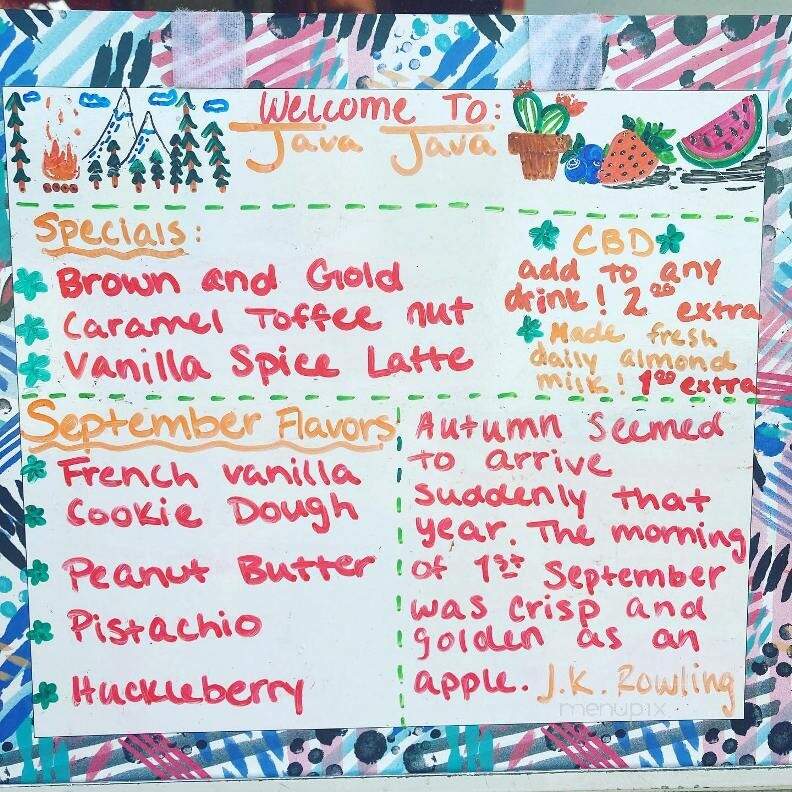 Welcome To:
Java Java
Specials:
Brown and Gold
Caramel Toffee nut
Vanilla Spice Latte
CBD
add to any
drink! 2.00 extra
Made fresh
daily almond
milk! 1.00 extra
September Flavors
French vanilla
Cookie Dough
Peanut Butter
Pistachio
Huckleberry
Autumn seemed
to arrive
suddenly that
year. The morning
of 1st September
was crisp and
golden as an
apple. J.K. Rowling
menupix